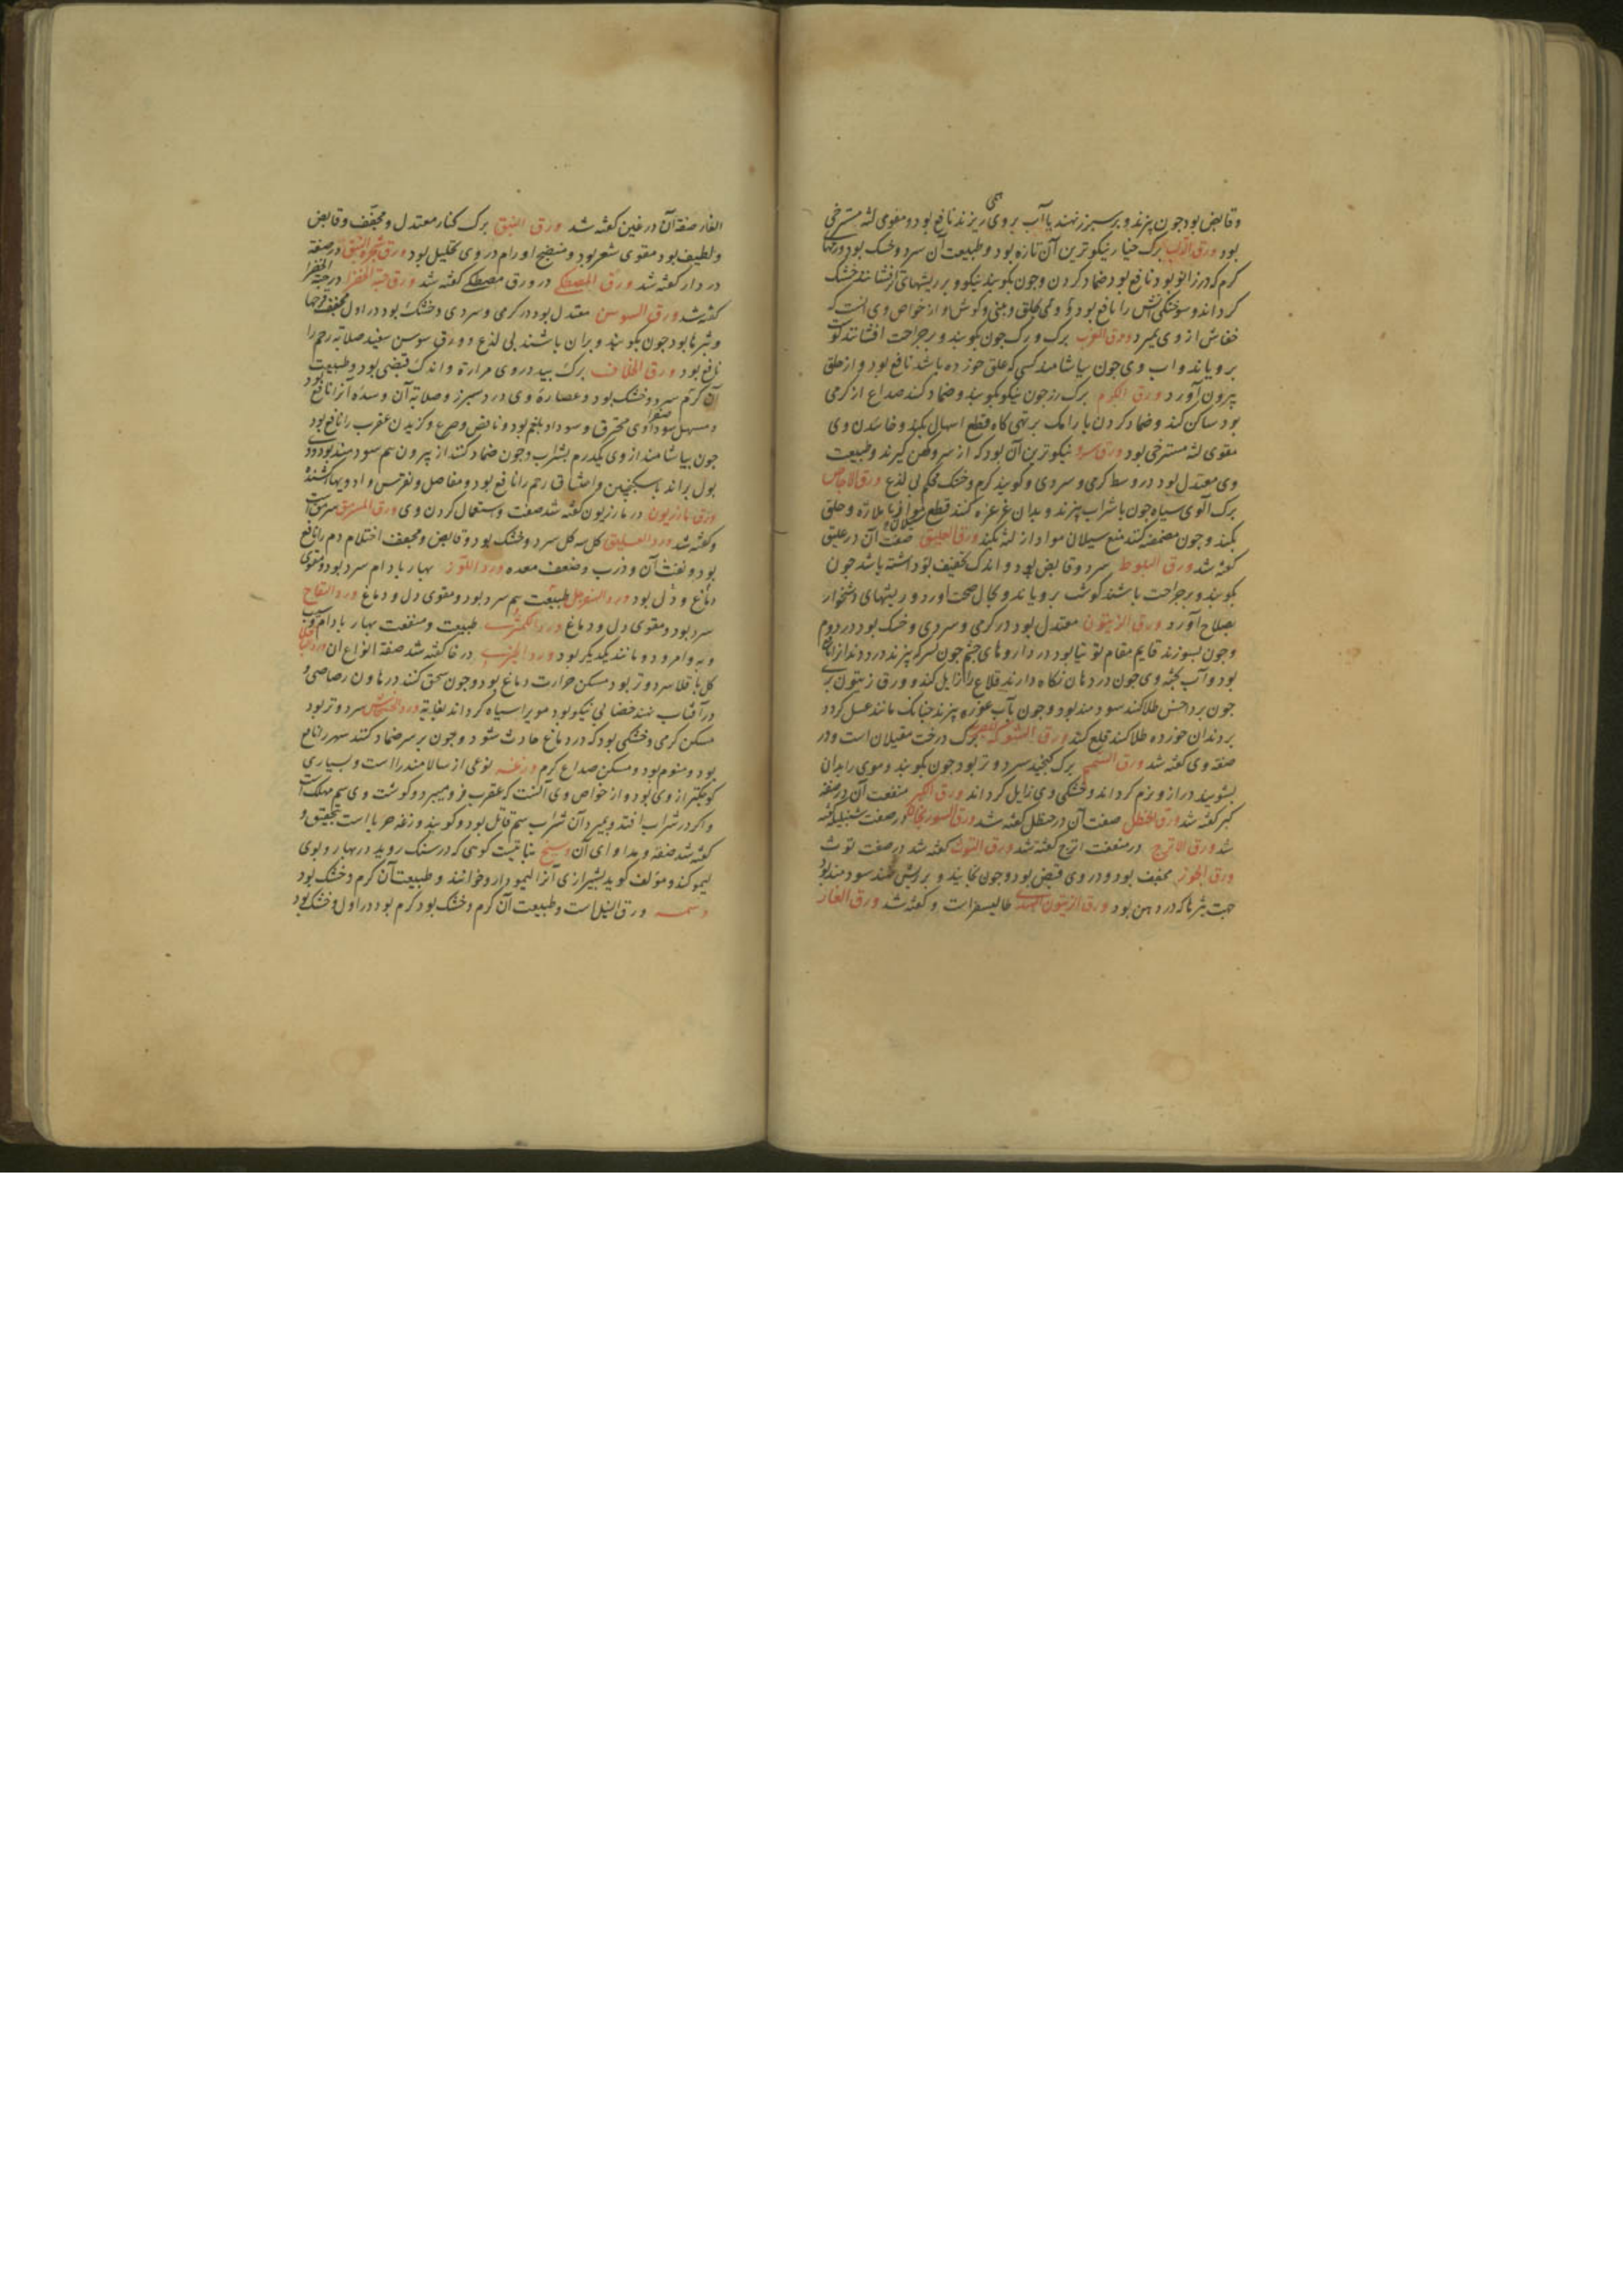 وقابض بود جون بپزند و بر سپرز نهند یا آب بر وی همی ریزند نافع بود و مقوی لثه مسترخی
بود ورق الدلب برک چنار نیکوترین آن تازه بود و طبیعت آن سرد و خشک بود ورمها
کرم که در زانو بود نافع بود ضماد کردن وجون بکوبند نیکو و بر ریشهای تر افشانند خشک
کرداند و سوختکی آتش را نافع بود و وی بحلق و بینی و کوش و از خواص وی آنست که
خفاش از وی بمیرد ورق الغرب برک و رک جون بکوبند و بر جراحت افشانند کوشت
برویاند و اب وی جون بیاشامد کسی که علق خورده باشد نافع بود و از حلق
بیرون آورد ورق الکرم برک رز جون نیکو بکوبند و ضماد کنند صداع از کرمی
بود ساکن کند و ضماد کردن با رامک بر تهی کاه قطع اسهال بکند و خاییدن وی
مقوی لثه مسترخی بود ورق سرو نیکوترین آن بود که از سرو کهن کیرند و طبیعت
وی معتدل بود در وسط کرمی و سردی و کویند کرم و خشک محکم بی لذع ورق الاجاص
برک آلوی سیاه جون با شراب بپزند و بدان غرغره کنند قطع سیلان مواد با ملازه و حلق
بکند وجون مضمضه کنند منع سیلان مواد از لثه بکند ورق العلیق صفت آن در علیق
کفته شد ورق البلوط سرد و قابض بود و اندک تجفیف بود داشته باشد جون
بکوبند و بر جراحت باشند کوشت برویاند و بحال صحت آورد و ریشهای دشخوار
بصلاح آورد ورق الزیتون معتدل بود در کرمی و سردی و خشک بود در دوم
وجون بسوزند قایم مقام توتیا بود در داروهای چشم جون بسرکه بپزند درد دندانرا نافع
بود و آب پخته وی جون در دهان نکاه دارند قلاع را زایل کند و ورق زیتون بری
جون بر داحس طلا کنند سودمند بود وجون بآب غوره بپزند چنانک مانند عسل کردد
بر دندان خورده طلا کنند قلع کند ورق الشوکه المصریه برک درخت مغیلان است و در
صفة وی کفته شد ورق السمسم برک کنجید سرد و تر بود جون بکوبند و موی را بدان
بشویند دراز و نرم کرداند و خشکی وی زایل کرداند ورق الکبر منفعت آن در صفة
کبر کفته شد ورق الحنظل صفت آن در حنظل کفته شد ورق السورنجان در صفت شنبلید کفته
شد ورق الاترج در منفعت اترج کفته شد ورق التوث کفته شد در صفت توث
ورق الجوز مجفف بود و در وی قبض بود وجون بخایند و بر ریش نهند سودمند بود
جهت بثرها که در دهن بود ورق الزیتون الهندی طالیسفر است و کفته شد ورق الغار
الغار صفة آن در غین کفته شد ورق النبق برک کنار معتدل و مجفف و قابض
و لطیف بود مقوی شعر بود و منضج اورام در وی تحلیل بود ورق شجرة البق در صفة
دردار کفته شد ورق المصطکی در ورق مصطکی کفته شد ورق حبة الخضرا در حبة الخضرا
کفته شد ورق السوسن معتدل بود در کرمی و سردی و خشک بود در اول مجفف
و بثرها بود جون بکوبند و بران باشند بی لذع و ورق سوسن سفید صلابة رحم را
نافع بود ورق الخلاف برک بید در وی مرارة و اندک قبضی بود و طبیعت
آن کرم سرد و خشک بود و عصارة وی درد سپرز و صلابة آن و سدة آنرا نافع بود
و مسهل سوداوی محترق و سودا و بلغم بود و نافض و صرع و کزیدن عقرب را نافع بود
جون بیاشامند از وی یکدرم بشراب وجون ضماد کنند از بیرون هم سودمند بود و
بول براند با سکنجبین و اختناق رحم را نافع بود و مفاصل و نقرس و ادویها کشنده
ورق مازریون در مازریون کفته شد صفت و استعمال کردن وی ورق السرمق سرمق است
و کفته شد ورد العلیق کل سه کل سرد و خشک بود و قابض و مجفف اختلام دم را نافع
بود و نفث آن و ذرب و ضعف معده ورد اللوز بهار بادام سرد بود و مقوی
دماغ و دل بود ورد السفرجل طبیعت هم سرد بود و مقوی دل و دماغ ورد التفاح
سرد بود و مقوی دل و دماغ ورد الکمثری طبیعت و منفعت بهار بادام و سیب
و به و امرود و مانند یکدیکر بود ورد الخیری در خا کفته شد صفة انواع ان ورد الباقلی
کل باقلا سرد و تر بود مسکن حرارت دماغ بود وجون سحق کنند در هاون رصاصی و
در آفتاب نهند خضابی نیکو بود مویرا سیاه کرداند بغایة ورد الخشخاش سرد و تر بود
مسکن کرمی و خشکی بود که در دماغ حادث شود وجون بر سر ضماد کنند سهر را نافع
بود و منوم بود و مسکن صداع کرم وزغه نوعی از سالامندرا است و بسیاری
کوچکتر از وی بود و از خواص وی آنست که عقرب فرو میبرد و کوشت وی سم مهلک است
و اکر در شراب افتد و بمیرد آن شراب سم قاتل بود و کویند وزغه حربا است بتحقیق و
کفته شد صفة و مداوای آن وسخ نباتیست کوهی که در سنک روید در بهار و بوی
لیمو کند و مؤلف کوید بشیرازی آنرا لیمو دارو خوانند و طبیعت آن کرم و خشک بود
وسمه ورق النیل است و طبیعت آن کرم و خشک بود کرم بود در اول و خشک بود